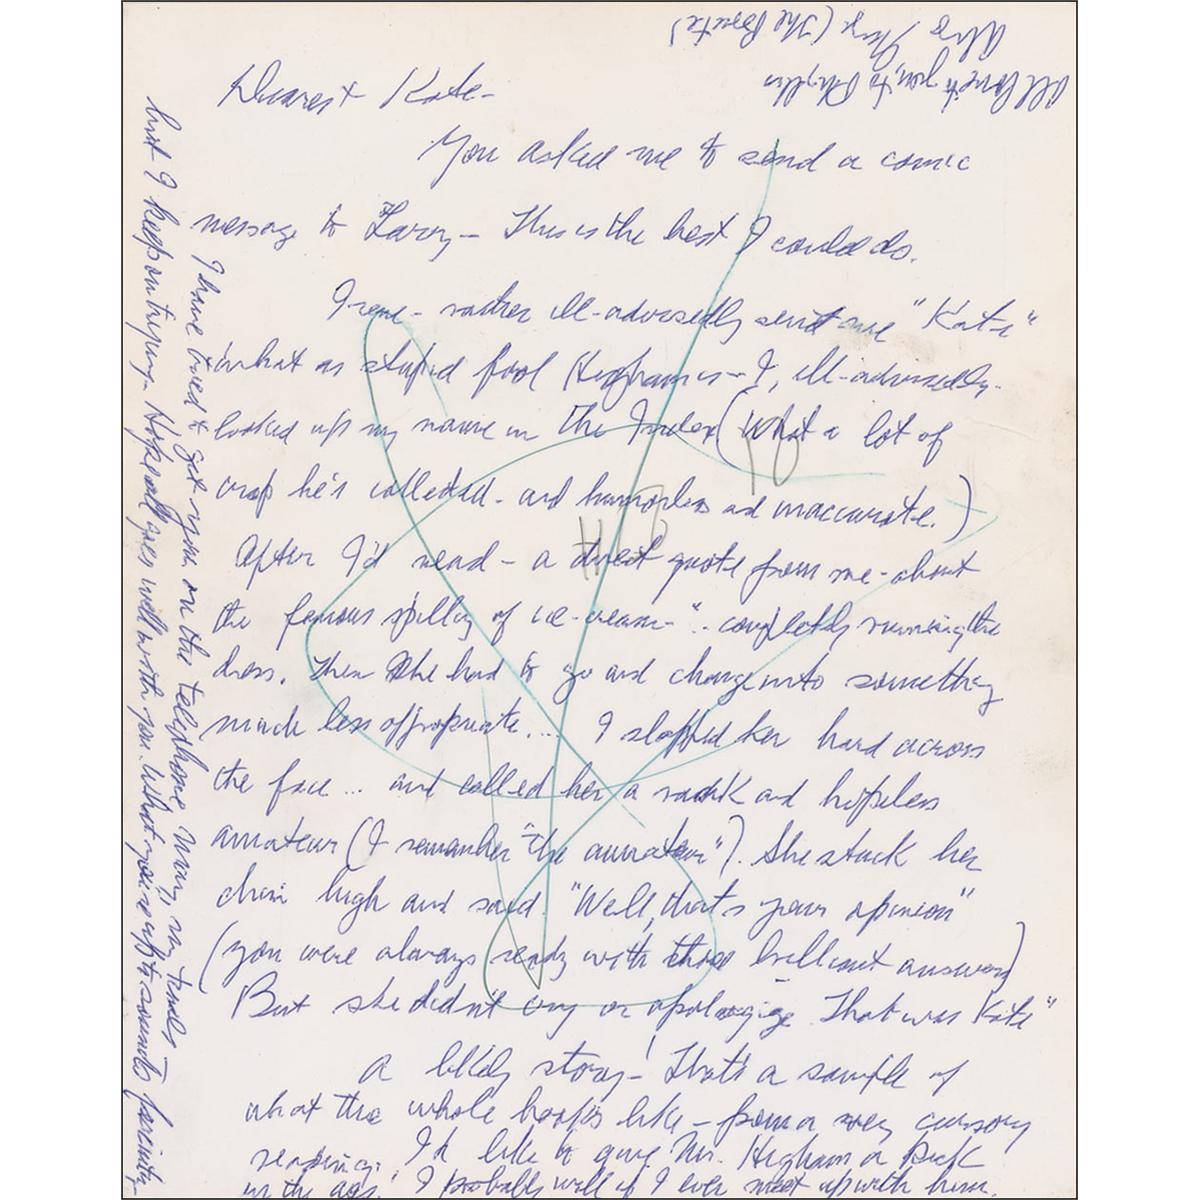 Dearest Kate-
You asked me to send a comic
message to Larry - This is the best I could do.
Irene - rather ill-advisedly sent me "Kate"
what a stupid fool Higham is - I, ill-advisedly -
looked up my name in the Index (What a lot of
crap he's collected - and humorless and inaccurate.)
After I'd read - a direct quote from me - about
the famous spilling of ice-cream - ".. completely ruining the
dress. Then she had to go and change into something
much less appropriate.... I slapped her hard across
the face ... and called her a rank and hopeless
amateur (I remember "the amateur"). She stuck her
chin high and said. "Well, that's your opinion"
(you were always ready with those brilliant answers)
But she didn't cry or apologize. That was Kate"
A likely story-! That's a sample of
what the whole book is like - from a very cursory
reading. I'd like to give Mr. Higham a kick
in the ass! I probably will if I ever meet up with him.
I have tried to get you on the telephone many, many times
but I keep on trying - Hope all goes well with you. What you're up to sounds
All love to you, to Phyllis
Also (The Brute)